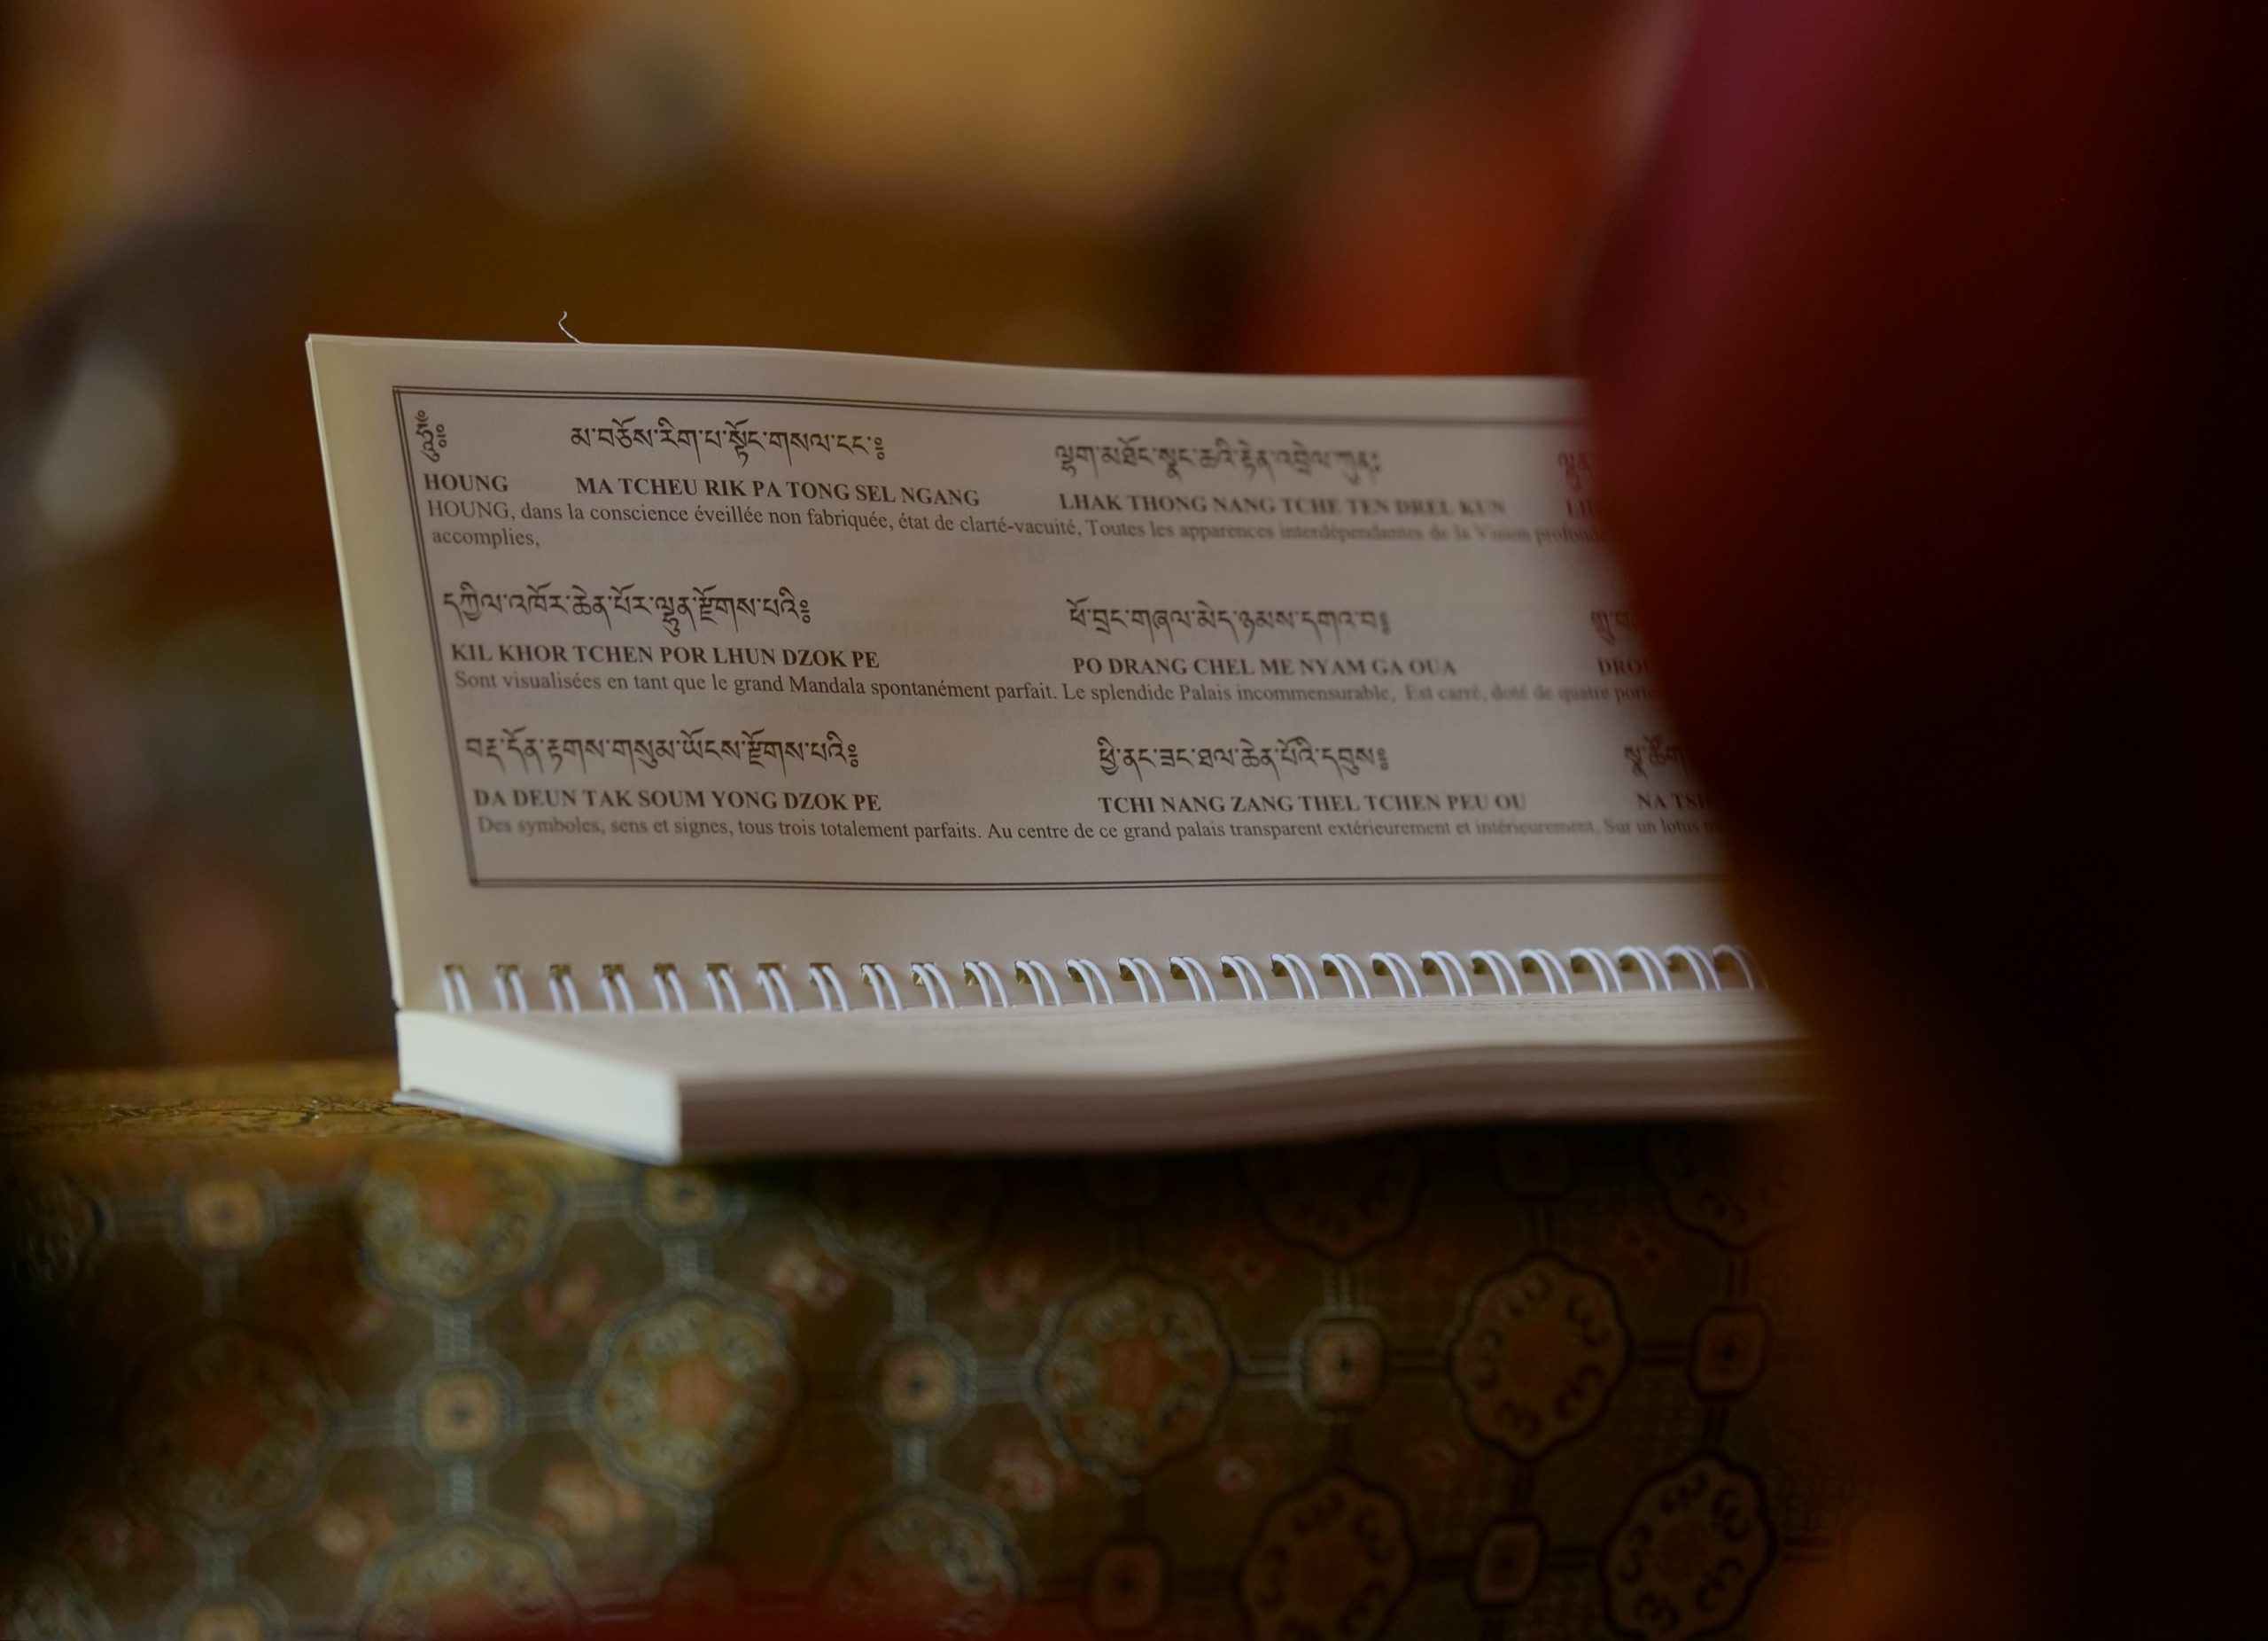 ཧཱུྃ༔ མ་བཅོས་རིག་པ་སྟོང་གསལ་ངང་༔ ལྷག་མཐོང་སྣང་ཆའི་རྟེན་འབྲེལ་ཀུན༔
HOUNG MA TCHEU RIK PA TONG SEL NGANG LHAK THONG NANG TCHE TEN DREL KUN
HOUNG, dans la conscience éveillée non fabriquée, état de clarté-vacuité, Toutes les apparences interdépendantes de la Vision profonde
accomplies,
དཀྱིལ་འཁོར་ཆེན་པོར་ལྷུན་རྫོགས་པའི༔ ཕོ་བྲང་གཞལ་མེད་ཉམས་དགའ་བ༔
KIL KHOR TCHEN POR LHUN DZOK PE PO DRANG CHEL ME NYAM GA OUA
Sont visualisées en tant que le grand Mandala spontanément parfait. Le splendide Palais incommensurable, Est carré, doté de quatre
བརྡ་དོན་རྟགས་གསུམ་ཡོངས་རྫོགས་པའི༔ ཕྱི་ནང་ཟང་ཐལ་ཆེན་པོའི་དབུས༔
DA DEUN TAK SOUM YONG DZOK PE TCHI NANG ZANG THEL TCHEN PEU OU NA
Des symboles, sens et signes, tous trois totalement parfaits. Au centre de ce grand palais transparent extérieurement et intérieurement. Sur un lotus